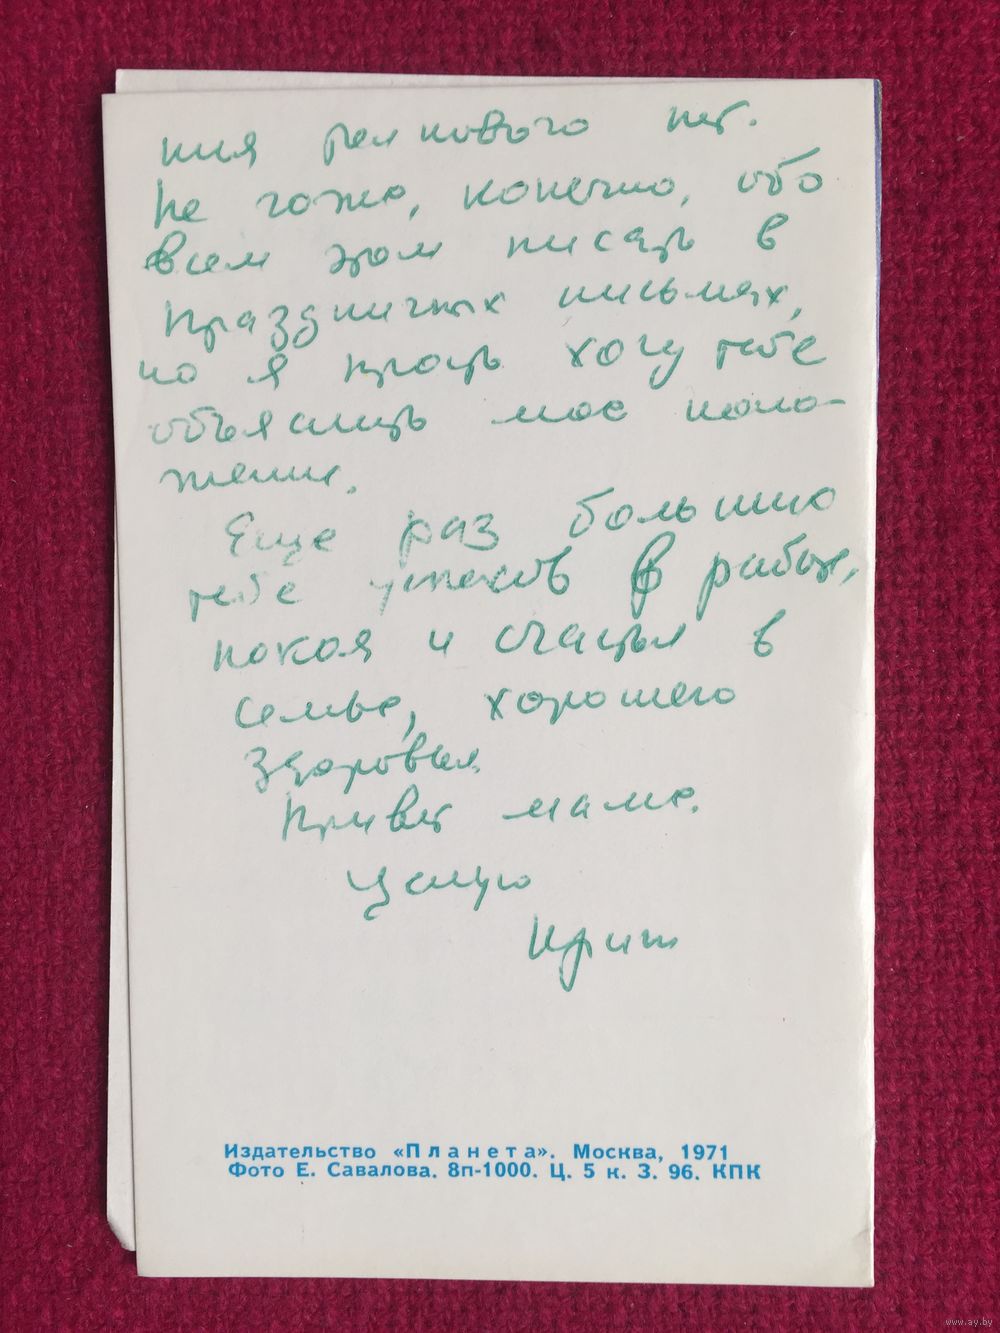 ния
нет.
Не гоже, конечно, обо
всем этом писать в
праздничных письмах,
но я просто хочу тебе
объяснить мое поло-
жение.
Еще раз больших
тебе успехов в работе,
покоя и счастья в
семье, хорошего
здоровья.
Привет маме.
Целую
Издательство «Планета». Москва, 1971
Фото Е. Савалова. 8п-1000. Ц. 5 к. З. 96. КПК
www.ay.by